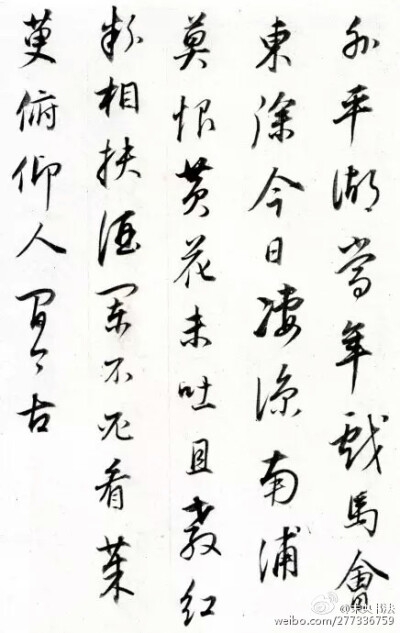 外平湖當年戲馬會
東徐今日淒涼南浦
莫恨黄花未吐且教紅
粉相扶酒闌不必看茱
萸俯仰人間今古
书法
weibo.com/277336759